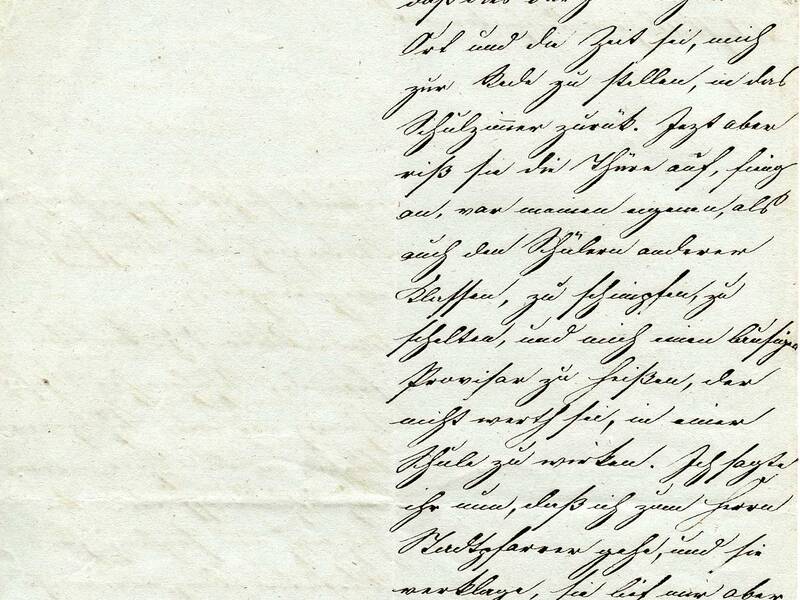 daß dies
Ort und die Zeit sei, mich
zur Rede zu stellen, in das
Schulzimmer zurük. Jezt aber
riß sie die Thüre auf, fing
an, vor meinen eigenen, als
auch den Schülern anderer
Klassen, zu schimpfen, zu
schelten, und mich einen lausigen
Provisor zu heißen, der
nicht werth sei, in einer
Schule zu wirken. Ich sagte
ihr nun, daß ich zum Herrn
Stadtpfarrer gehe, und sie
verklage, sie lief mir aber